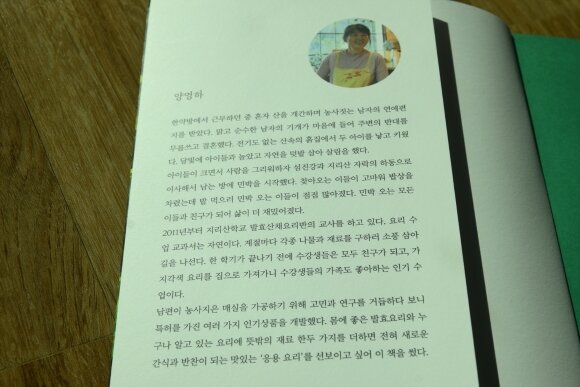 양영하
한약방에서 근무하던 중 혼자 산을 개간하며 농사짓는 남자의 연애편
지를 받았다. 맑고 순수한 남자의 기개가 마음에 들어 주변의 반대를
무릅쓰고 결혼했다. 전기도 없는 산속의 흙집에서 두 아이를 낳고 키웠
다. 달빛에 아이들과 놀았고 자연을 텃밭 삼아 살림을 했다.
아이들이 크면서 사람을 그리워하자 섬진강과 지리산 자락의 하동으로
이사해서 남는 방에 민박을 시작했다. 찾아오는 이들이 고마워 밥상을
차렸는데 밥 먹으러 민박 오는 이들이 점점 많아졌다. 민박 오는 모든
이들과 친구가 되어 삶이 더 재밌어졌다.
2011년부터 지리산학교 발효산채요리반의 교사를 하고 있다. 요리 수
업 교과서는 자연이다. 계절마다 각종 나물과 재료를 구하러 소풍 삼아
길을 나선다. 한 학기가 끝나기 전에 수강생들은 모두 친구가 되고, 가
지각색 요리를 집으로 가져가니 수강생들의 가족도 좋아하는 인기 수
업이다.
남편이 농사지은 매실을 가공하기 위해 고민과 연구를 거듭하다 보니
특허를 가진 여러 가지 인기상품을 개발했다. 몸에 좋은 발효요리와 누
구나 알고 있는 요리에 뜻밖의 재료 한두 가지를 더하면 전혀 새로운
간식과 반찬이 되는 맛있는 ‘응용 요리’를 선보이고 싶어 이 책을 썼다.